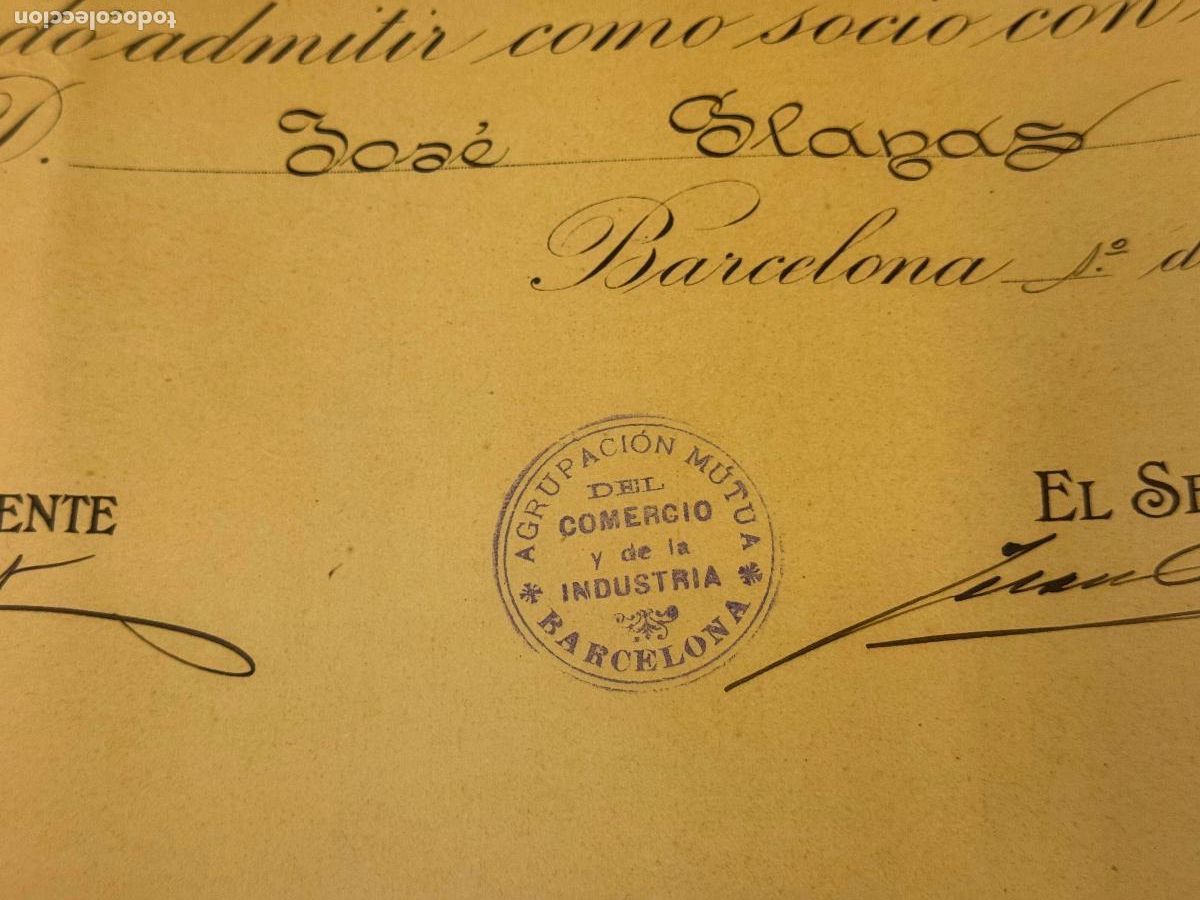 todocoleccion
do admitir como socio con
D. José
Barcelona 1.º d
ENTE
EL SE
AGRUPACIÓN MÚTUA
DEL
COMERCIO
y de la
INDUSTRIA
* BARCELONA *
Juan